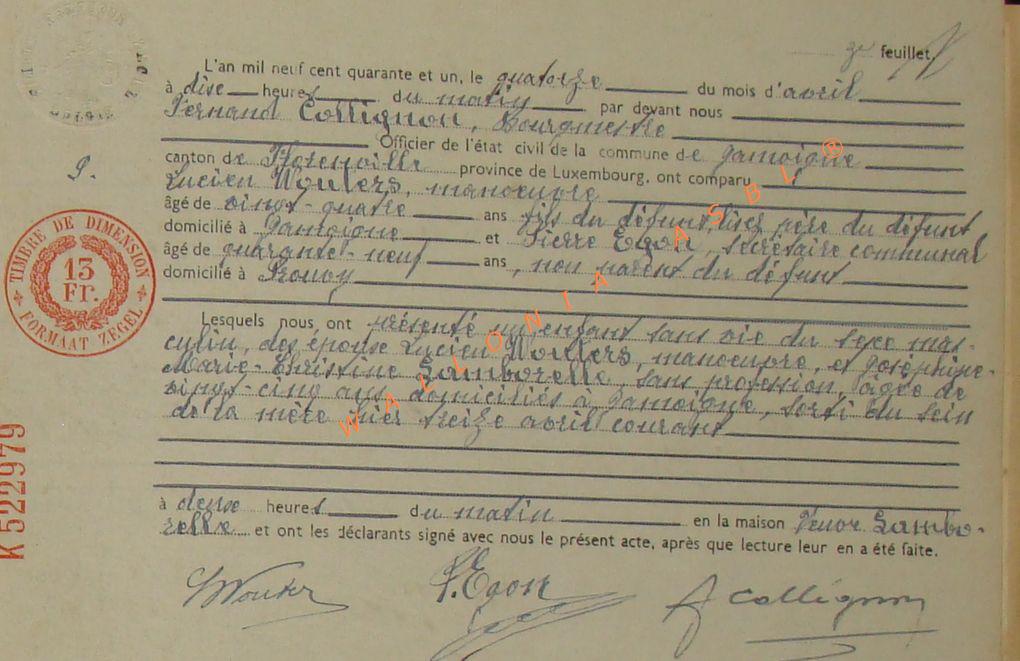 2e feuillet
L'an mil neuf cent quarante et un, le quatorze du mois d'avril
à dise heures du matin par devant nous
Fernand Collignon, Bourgmestre
Officier de l'état civil de la commune de Jamoigne
canton de Florenville province de Luxembourg, ont comparu
Lucien Wouters, manoeuvre
âgé de vingt-quatre ans fils du défunt, lisez père du défunt
domicilié à Jamoigne et Pierre Egon, secrétaire communal
âgé de quarante-neuf ans, non parent du défunt
domicilié à Prouvy
Lesquels nous ont présenté un enfant sans vie du sexe mas-
culin, des époux Lucien Wouters, manoeuvre, et Joséphine-
Marie-Christine Lamborelle, sans profession, âgée de
vingt-cinq ans, domiciliés à Jamoigne, sorti du sein
de la mère hier treize avril courant
à deuse heures du matin en la maison Veuve Lambo-
relle et ont les déclarants signé avec nous le présent acte, après que lecture leur en a été faite.
LWouters
P.Egon
F Collignon
9.
TIMBRE DE DIMENSION
13
FR.
FORMAAT ZEGEL
K522979
WALLONIA ASBL®